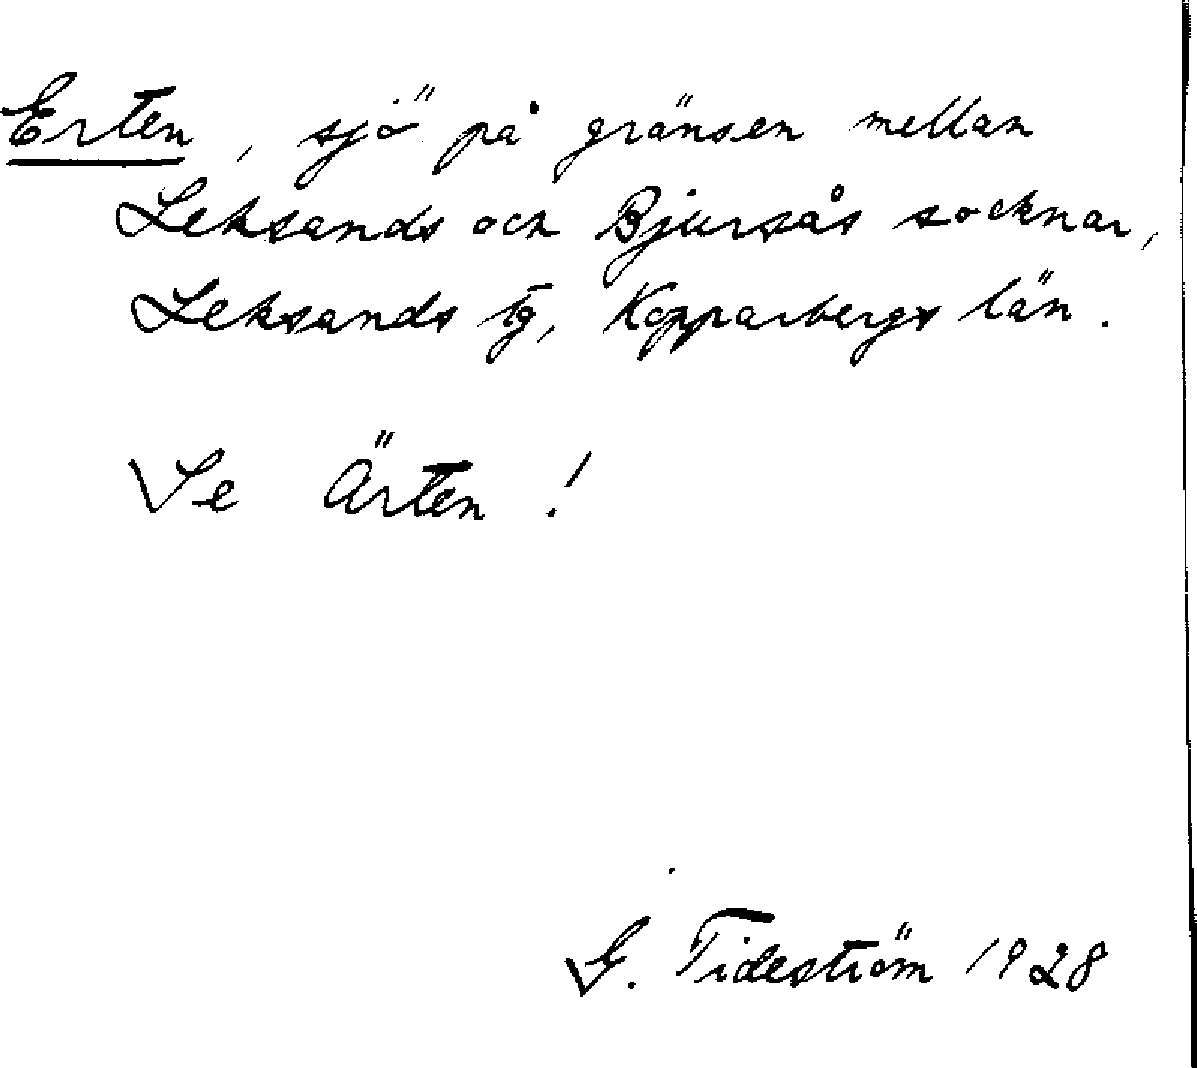 Erten, sjö på gränsen mellan
Leksands och Bjursås socknar,
Leksands tg, Kopparbergs län.
Se Ärten!
G. Tideström 1928